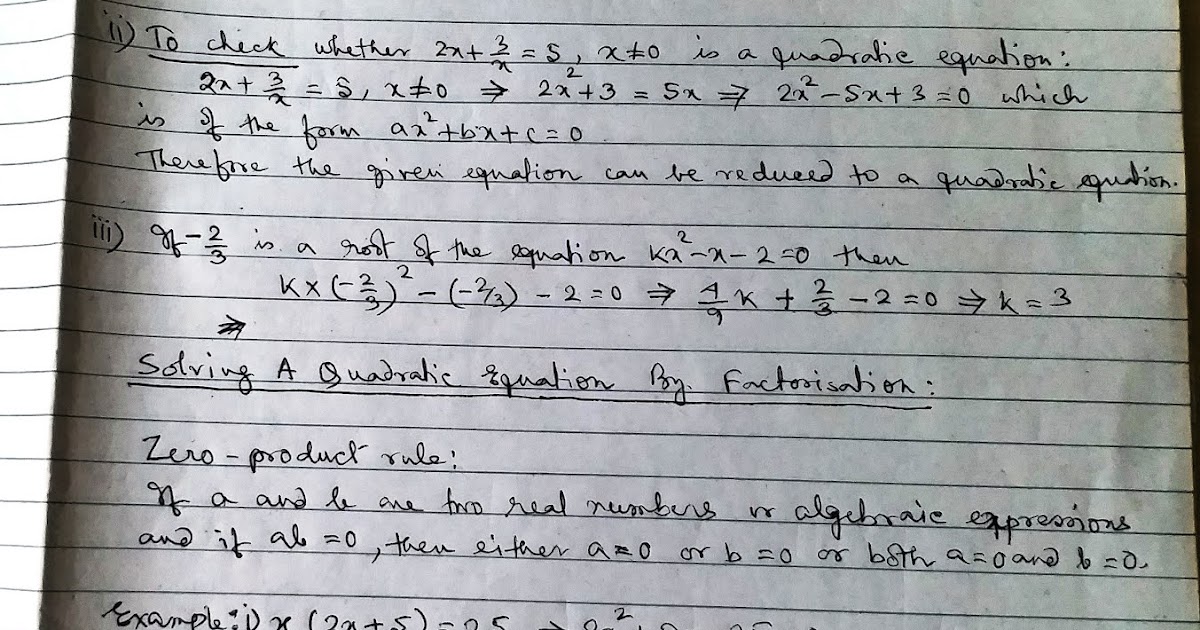 ii) To check whether 2x + 3/x = 5, x ≠ 0 is a quadratic equation:
2x + 3/x = 5, x ≠ 0 ⇒ 2x² + 3 = 5x ⇒ 2x² - 5x + 3 = 0 which
is of the form ax² + bx + c = 0
Therefore the given equation can be reduced to a quadratic equation.
iii) If -2/3 is a root of the equation kx² - x - 2 = 0 then
k × (-2/3)² - (-2/3) - 2 = 0 ⇒ 4/9 k + 2/3 - 2 = 0 ⇒ k = 3
⇒
Solving A Quadratic Equation By. Factorisation:
Zero-product rule:
If a and b are two real numbers or algebraic expressions
and if ab = 0, then either a = 0 or b = 0 or both a = 0 and b = 0.
Example: i) x (2x + 5) = 25